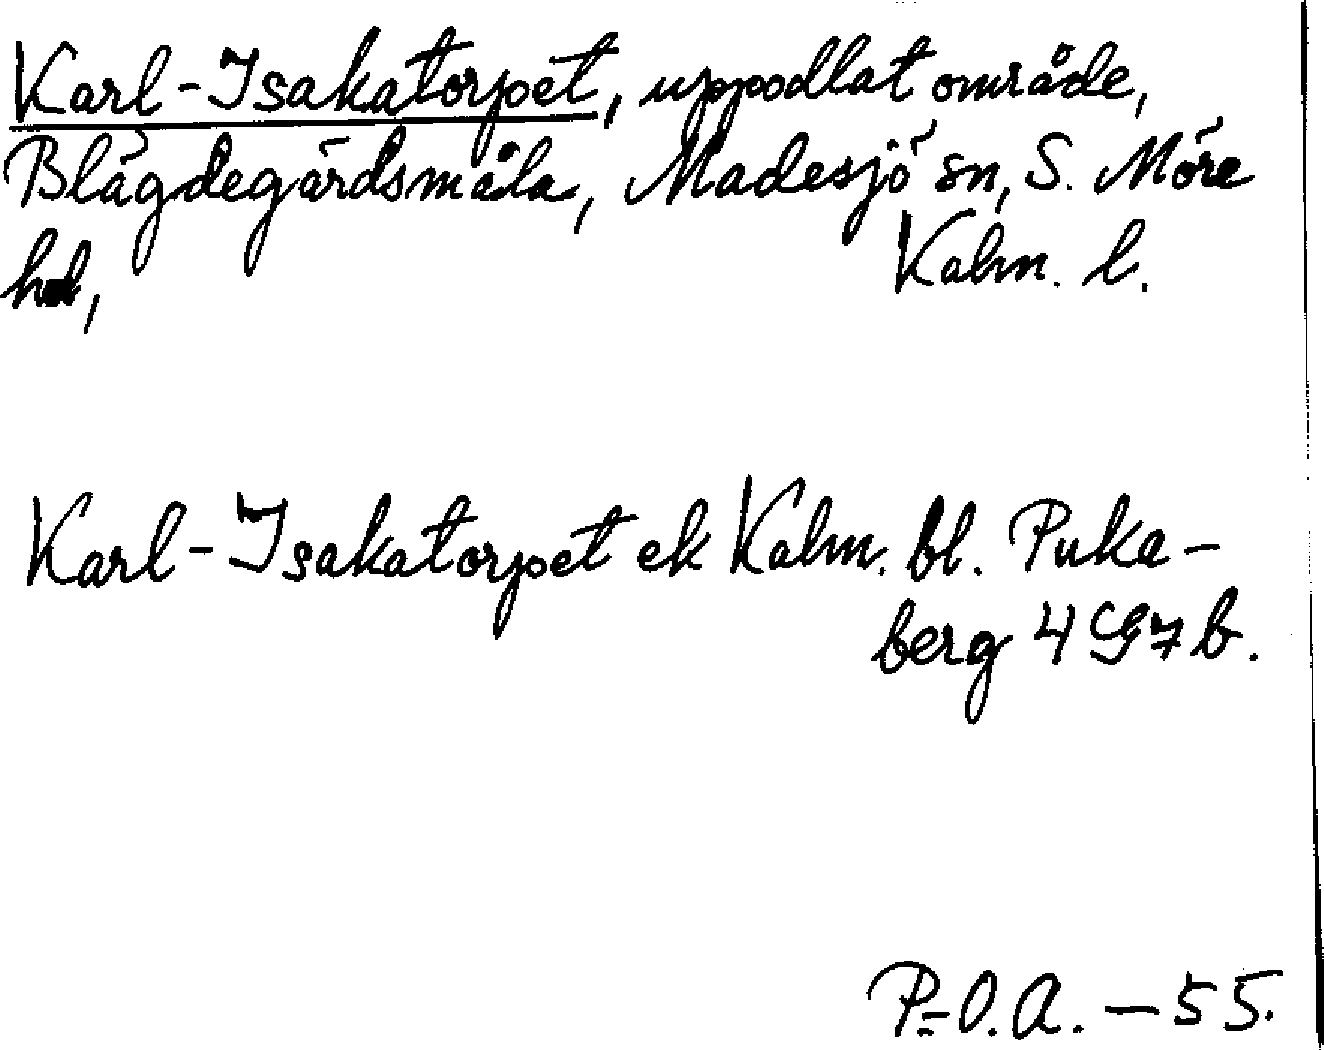 Karl-Isakatorpet, uppodlat område,
Blägdegärdsmåla, Madesjö sn, S. Möre
hd, Kalm. l.
Karl-Isakatorpet ek Kalm. bl. Puka-
berg 4 G 7 b.
P-O.A. - 55.